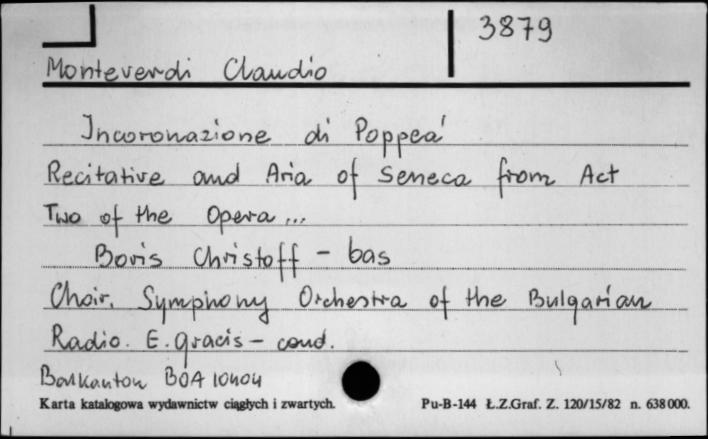 3879
Monteverdi Claudio
Incoronazione di Poppea'
Recitative and Aria of Seneca from Act
Two of the Opera...
Boris Christoff - bas
Choir. Symphony Orchestra of the Bulgarian
Radio. E. gracis - cond.
Balkanton BOA 10404
Karta katalogowa wydawnictw ciągłych i zwartych. Pu-B-144 Ł.Z.Graf. Z. 120/15/82 n. 638000.